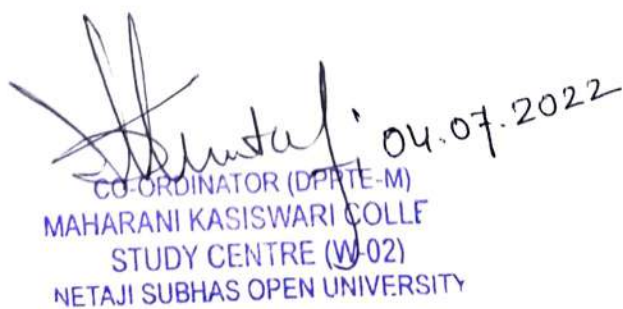 04.07.2022
CO-ORDINATOR (DPPTE-M)
MAHARANI KASISWARI COLLE
STUDY CENTRE (W-02)
NETAJI SUBHAS OPEN UNIVERSITY